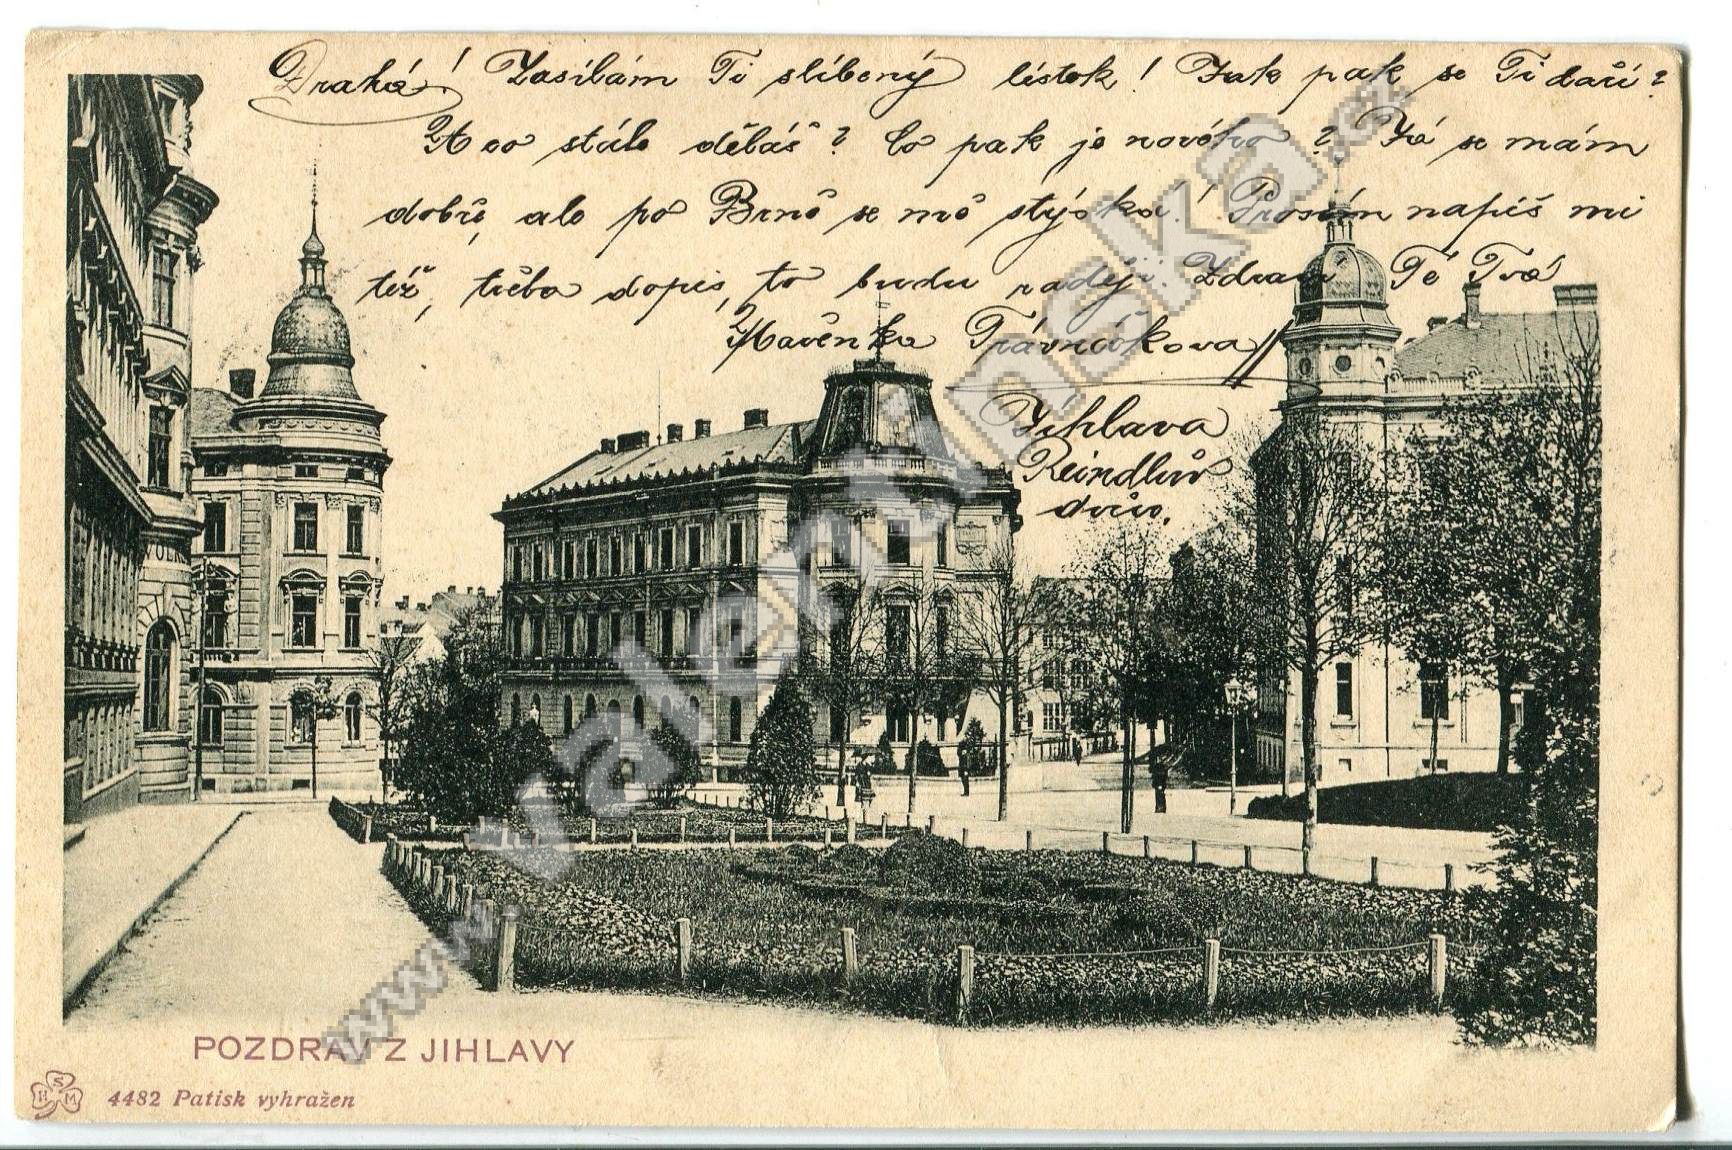 Drahá! Zasílám Ti slíbený lístek! Jak pak se Ti daří?
A co stále děláš? Co pak je nového? Já se mám
dobře, ale po Brně se mě stýská! Prosím napiš mi
též, třeba dopis, to budu raději. Zdraví Tě Tvá
Mařenka Trávníčkova
Jihlava
Reindlův
dvůr.
VOLK
www.valentynska.cz
POZDRAV Z JIHLAVY
HSM
4482 Patisk vyhražen